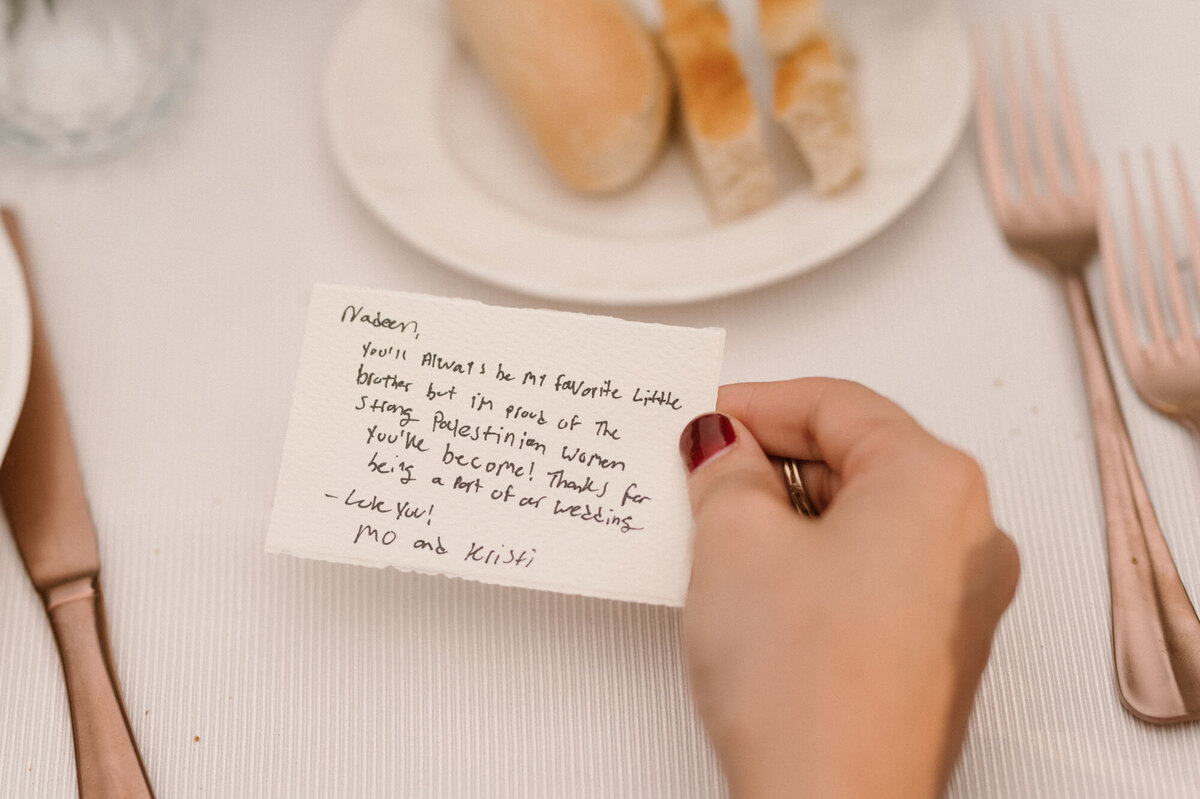 Nadeen,
You'll Always be my favorite little
brother but i'm proud of the
strong Palestinian women
You've become! Thanks for
being a part of our wedding
- Luk You!
Mo and Kristi